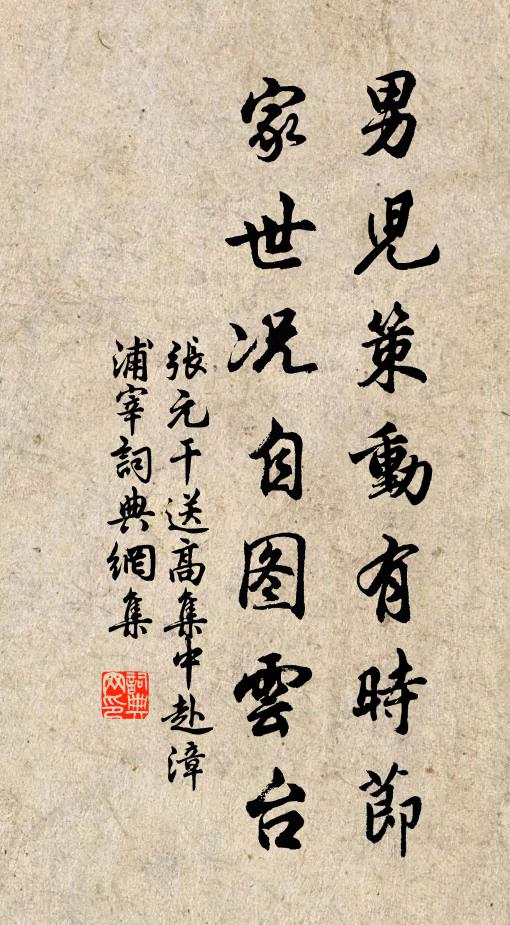 男児策動有時節
家世况自图雲台
張元干送高集中赴漳
浦宰詞典網集
詞典网印